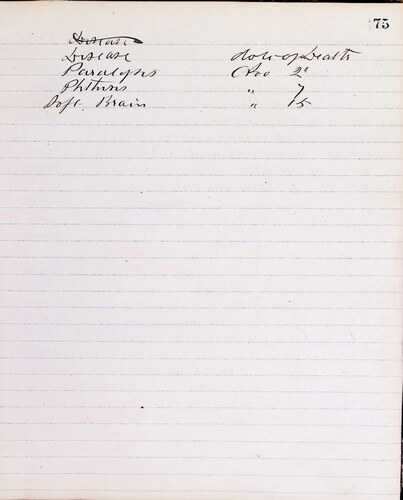 75
Disease
Disease Date of Death
Paralysis Nov 2"
Phthisis " 7
Soft. Brain " 15